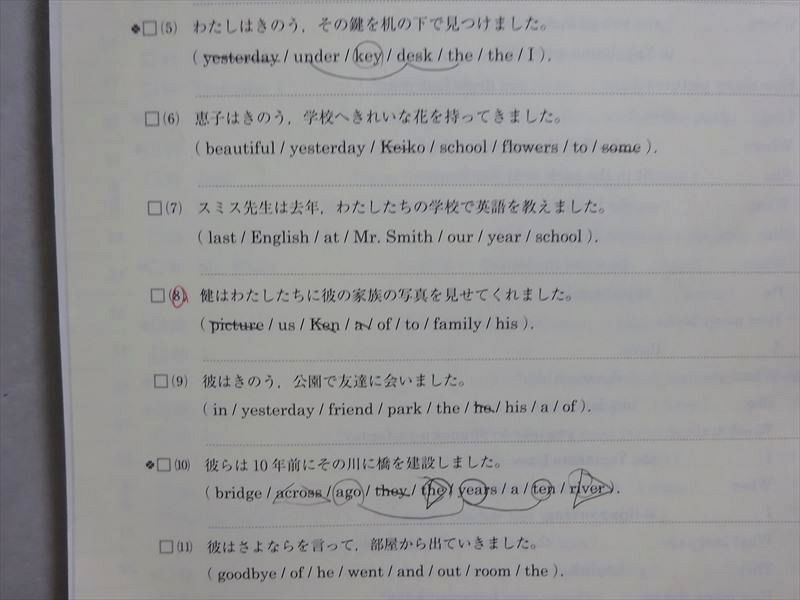 ❖□(5) わたしはきのう，その鍵を机の下で見つけました。
( yesterday / under / key / desk / the / the / I ).
□(6) 恵子はきのう，学校へきれいな花を持ってきました。
( beautiful / yesterday / Keiko / school / flowers / to / some ).
□(7) スミス先生は去年，わたしたちの学校で英語を教えました。
( last / English / at / Mr. Smith / our / year / school ).
□(8) 健はわたしたちに彼の家族の写真を見せてくれました。
( picture / us / Ken / a / of / to / family / his ).
□(9) 彼はきのう，公園で友達に会いました。
( in / yesterday / friend / park / the / he / his / a / of ).
❖□(10) 彼らは10年前にその川に橋を建設しました。
( bridge / across / ago / they / the / years / a / ten / river ).
□(11) 彼はさよならを言って，部屋から出ていきました。
( goodbye / of / he / went / and / out / room / the ).